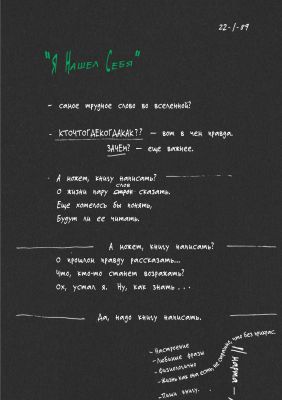 22-1-89
"Я Нашел Себя"
- самое трудное слово во вселенной?
- КТОЧТОГДЕКОГДАКАК?? - вот в чем правда.
ЗАЧЕМ? - еще важнее.
- А может, книгу написать?
О жизни пару строк слов сказать.
Еще хотелось бы понять,
Будут ли ее читать.
А может, книгу написать?
О прошлом правду рассказать...
Что, кто-то станет возражать?
Ох, устал я. Ну, как знать...
Да, надо книгу написать.
- Настроение
- Любимые фразы
- Физиология
- Жизнь как она есть, не страшно, что без прикрас.
- Пиши книгу.